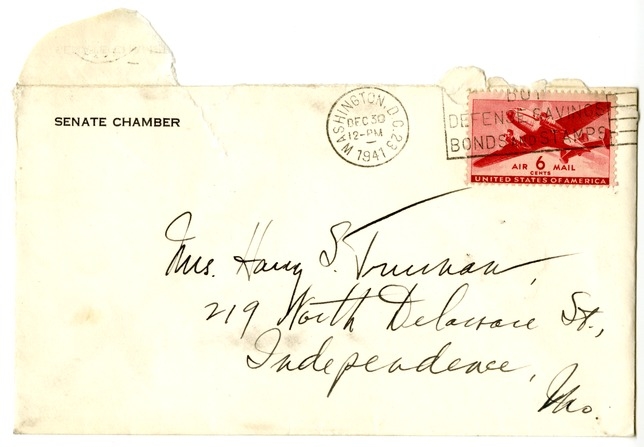 SENATE CHAMBER
WASHINGTON, D.C. 23
DEC 30
12-PM
1941
BUY
DEFENSE SAVINGS
BONDS AND STAMPS
AIR 6 MAIL
CENTS
UNITED STATES OF AMERICA
Mrs. Harry S. Truman,
219 North Delaware St.,
Independence,
Mo.